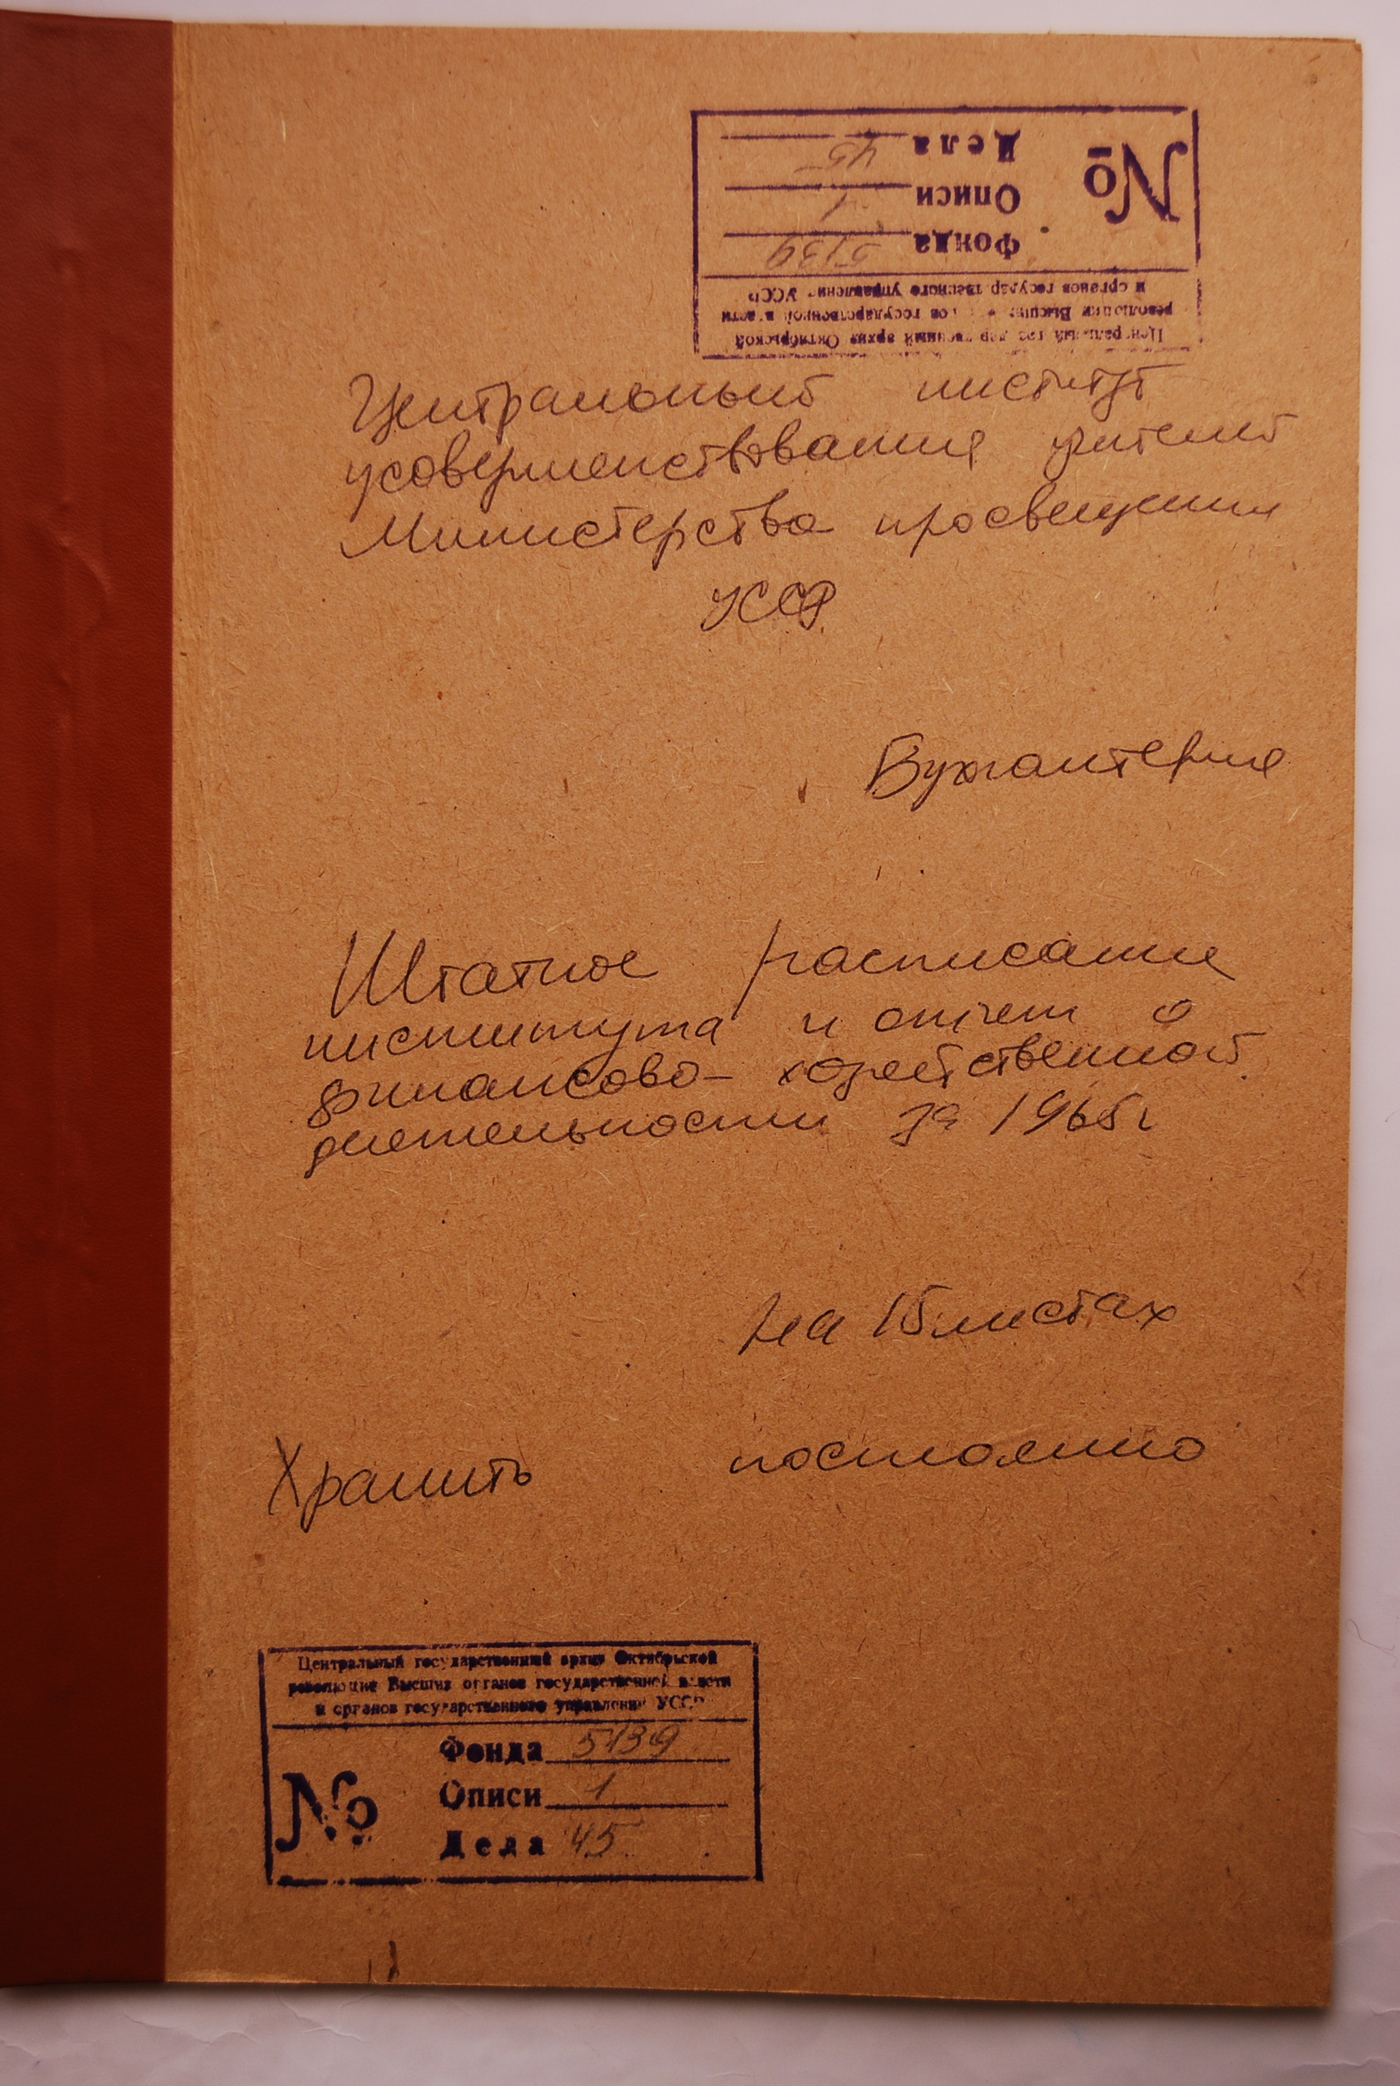 Центральный государственный архив Октябрьской
революции Высших органов государственной власти
и органов государственного управления УССР
№
Фонда 5139
Описи 1
Дела 45
Центральный институт
усовершенствования учителей
Министерства просвещения
УССР
Бухгалтерия
Штатное расписание
института и отчет о
финансово-хозяйственной
деятельности за 1965г
на 15 листах
Хранить постоянно
Центральный государственный архив Октябрьской
революции Высших органов государственной власти
и органов государственного управления УССР
№
Фонда 5139
Описи 1
Дела 45